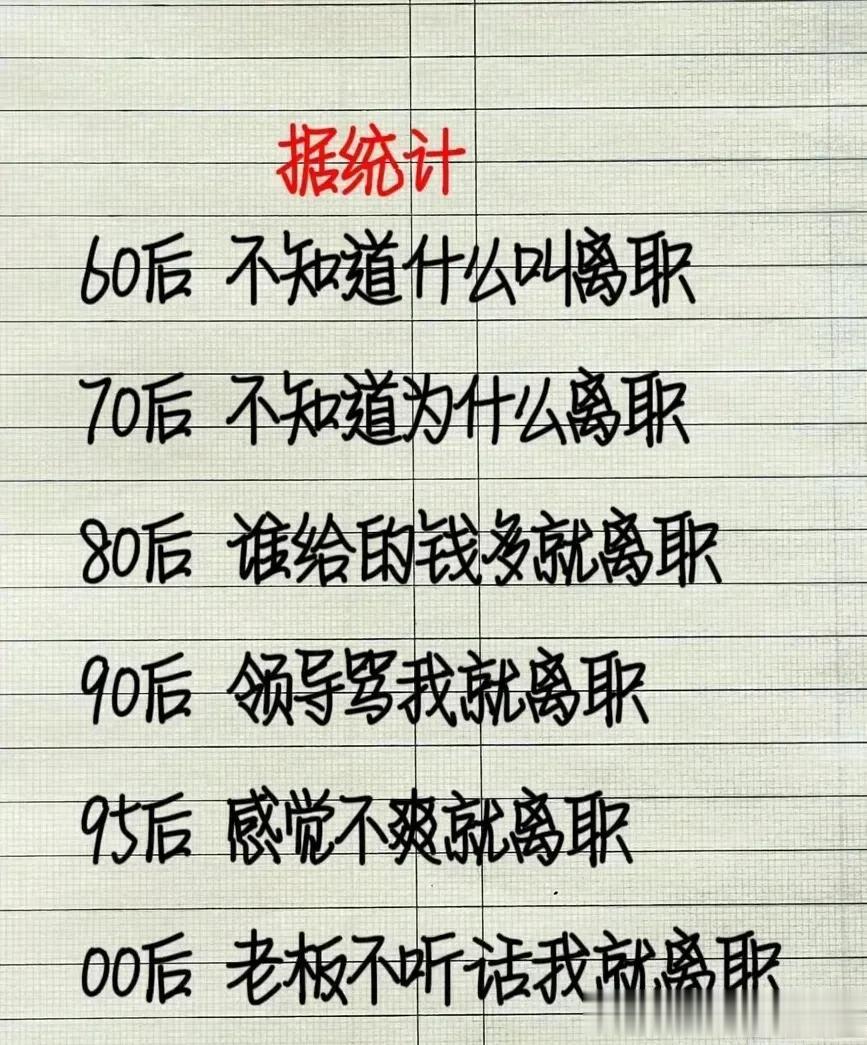 据统计
60后 不知道什么叫离职
70后 不知道为什么离职
80后 谁给的钱多就离职
90后 领导骂我就离职
95后 感觉不爽就离职
00后 老板不听话我就离职